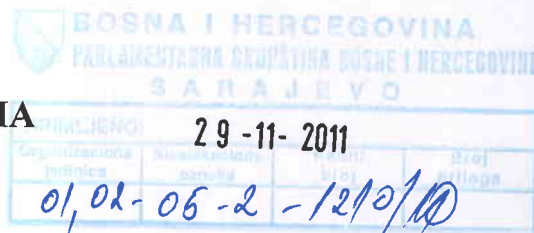 BOSNA I HERCEGOVINA
PARLAMENTARNA SKUPŠTINA BOSNE I HERCEGOVINE
SARAJEVO
PRIMLJENO:
29-11-2011
Organizaciona jedinica
Klasifikaciona oznaka
Redni broj
Broj priloga
01,02-05-2-1210/